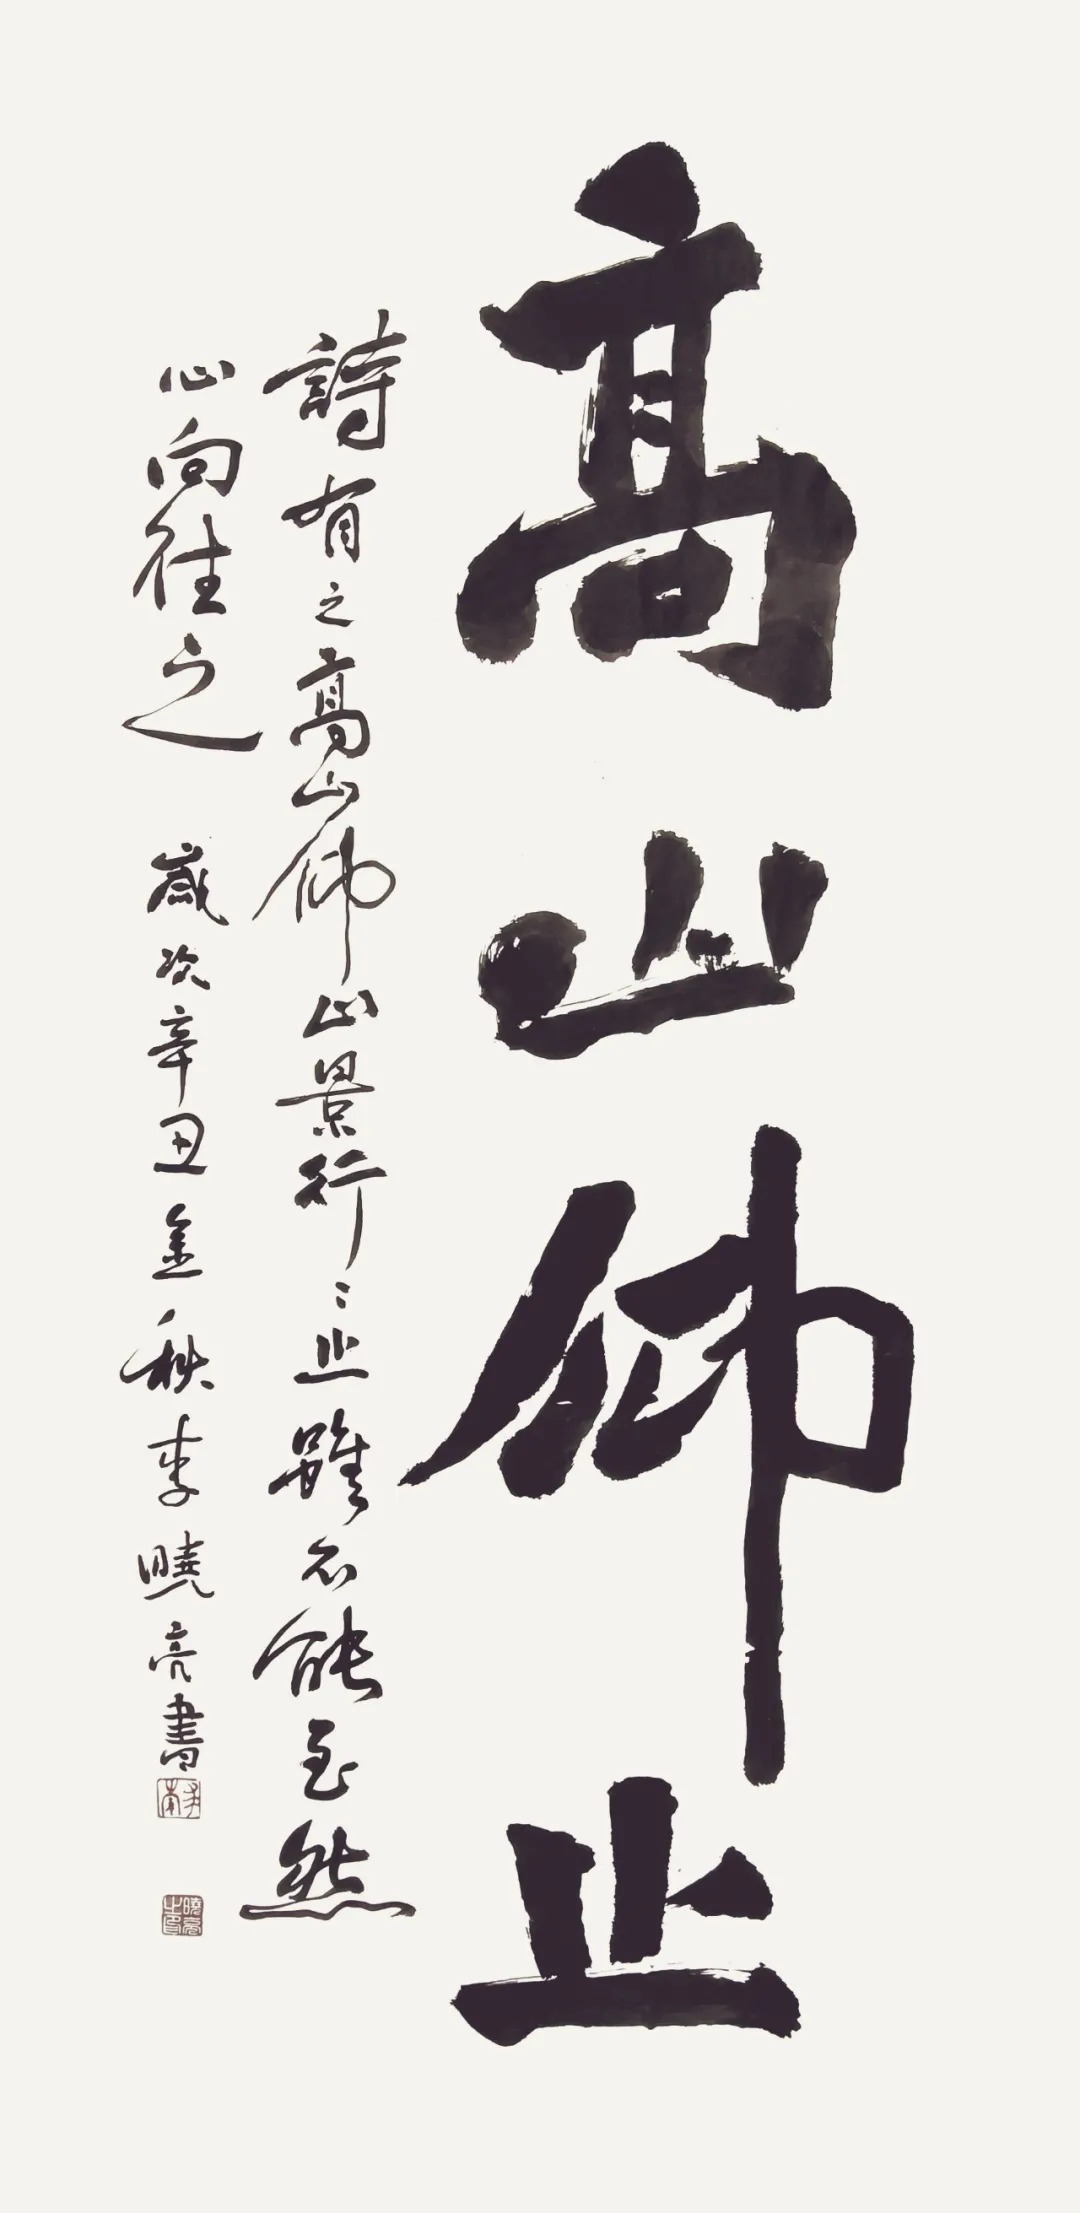 高山仰止
詩有之高山仰止景行〻止雖不能至然
心向往之 歲次辛丑金秋李曉亮書
曉亮之印